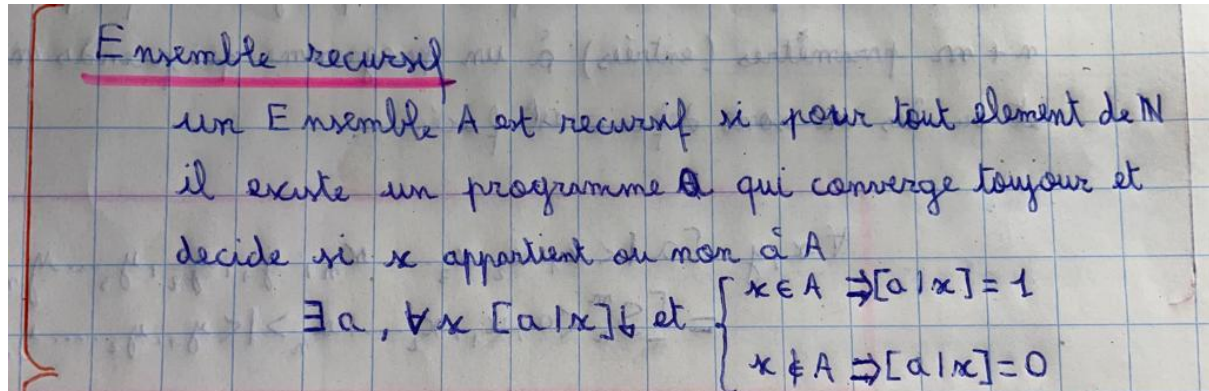 Ensemble recursif
un Ensemble A est recursif si pour tout element de ℕ
il existe un programme a qui converge toujour et
decide si x appartient ou non à A
∃a, ∀x [a|x]↓ et { x ∈ A ⇒ [a|x] = 1
x ∉ A ⇒ [a|x] = 0